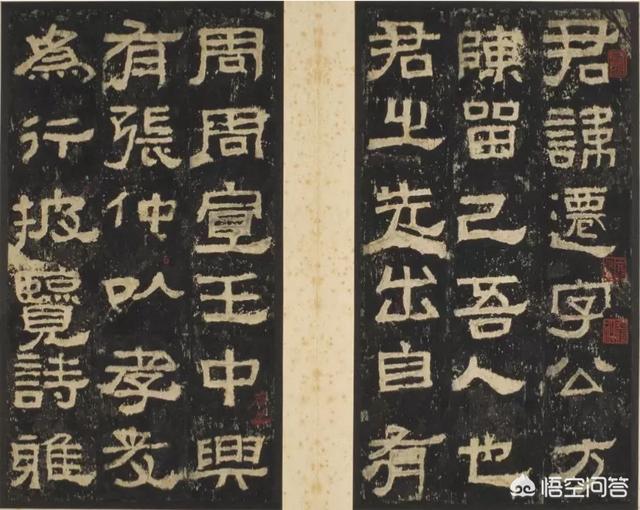 君諱遷字公方
陳留己吾人也
君之先出自有
周周宣王中興
有張仲以孝友
為行披覽詩雅
悟空问答